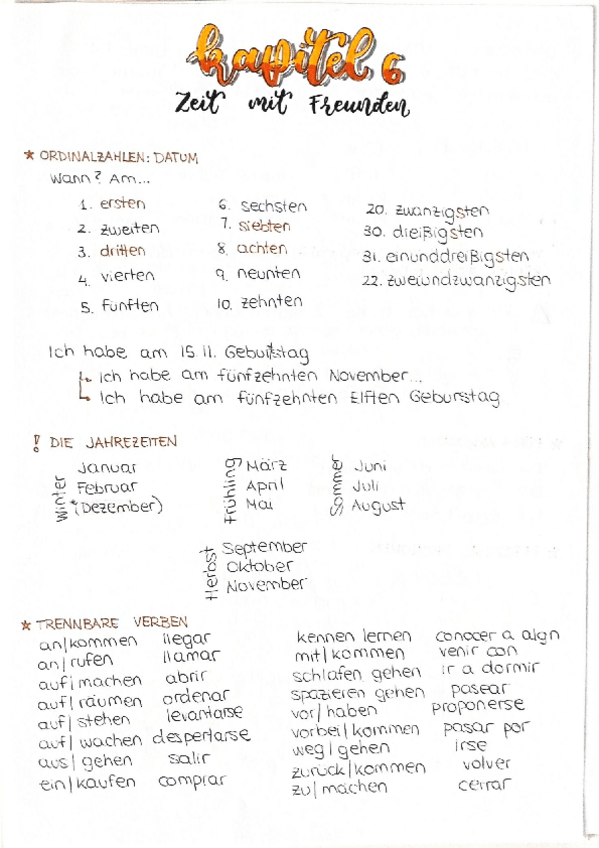 Kapitel 6
Zeit mit Freunden
* ORDINALZAHLEN: DATUM
Wann? Am...
1. ersten
2. zweiten
3. dritten
4. vierten
5. fünften
6. sechsten
7. siebten
8. achten
9. neunten
10. zehnten
20. zwanzigsten
30. dreißigsten
31. einunddreißigsten
22. zweiundzwanzigsten
Ich habe am 15.11. Geburtstag
Ich habe am fünfzehnten November...
Ich habe am fünfzehnten Elften Geburstag
! DIE JAHREZEITEN
Winter
Januar
Februar
*(Dezember)
Frühling
März
April
Mai
Sommer
Juni
Juli
August
Herbst
September
Oktober
November
* TRENNBARE VERBEN
an|kommen llegar
an|rufen llamar
auf|machen abrir
auf|räumen ordenar
auf|stehen levantarse
auf|wachen despertarse
aus|gehen salir
ein|kaufen comprar
kennen lernen conocer a algn
mit|kommen venir con
schlafen gehen ir a dormir
spazieren gehen pasear
vor|haben proponerse
vorbei|kommen pasar por
weg|gehen irse
zurück|kommen volver
zu|machen cerrar